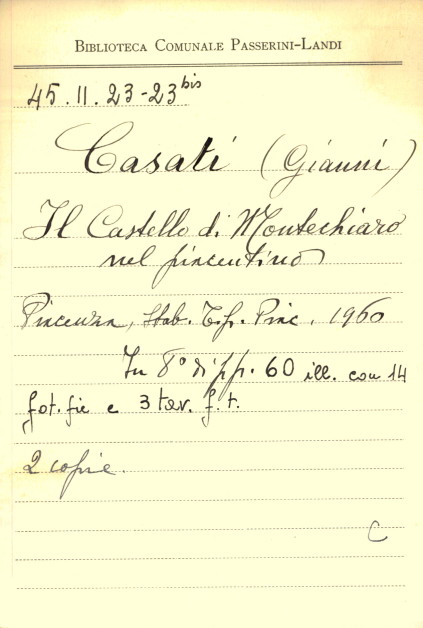 BIBLIOTECA COMUNALE PASSERINI-LANDI
45.II.23-23bis
Casati (Gianni)
Il Castello di Montechiaro
nel piacentino
Piacenza, Stab. Tip. Piac., 1960
In 8° di pp. 60 ill. con 14
fot. fie e 3 tav. f.t.
2 copie.
C